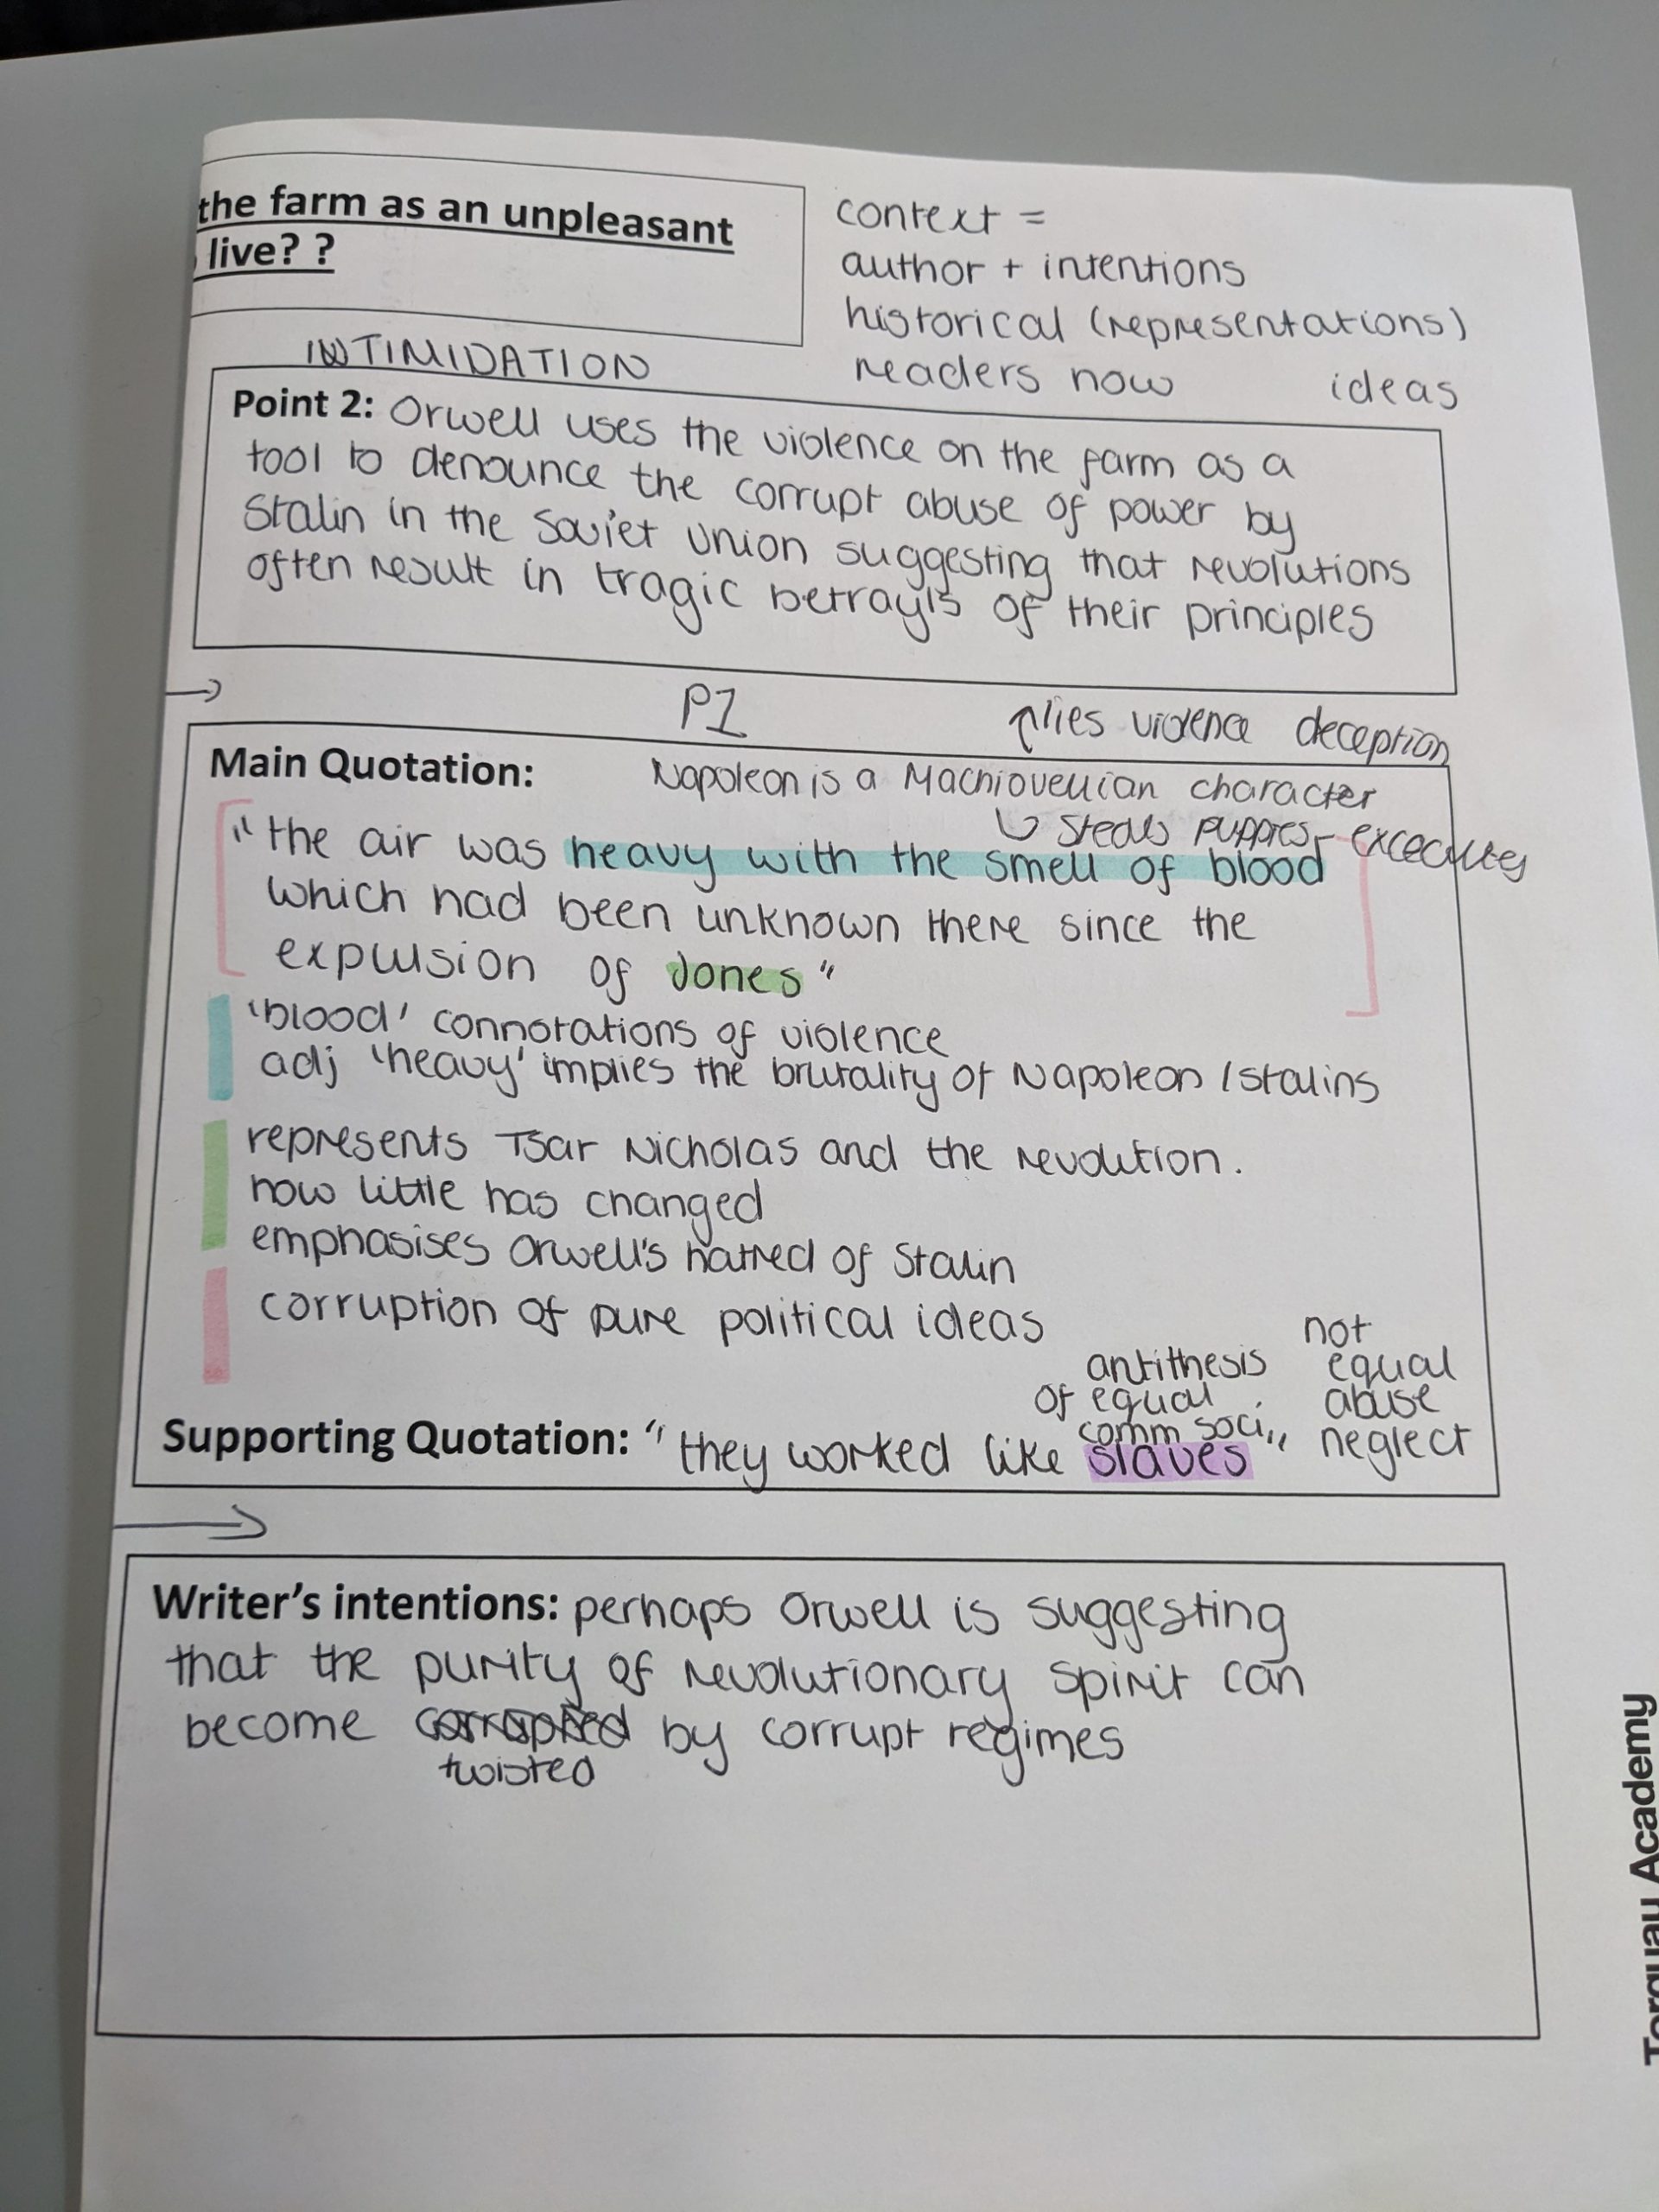 the farm as an unpleasant
live? ?
context =
author + intentions
historical (representations)
readers now ideas
INTIMIDATION
Point 2: Orwell uses the violence on the farm as a
tool to denounce the corrupt abuse of power by
Stalin in the Soviet Union suggesting that revolutions
often result in tragic betrayls of their principles
P1
lies violence deception
Main Quotation: Napoleon is a Machiovellian character
steals puppies - excecutes
"the air was heavy with the smell of blood
which had been unknown there since the
expulsion of Jones"
'blood' connotations of violence
adj 'heavy' implies the brutality of Napoleon / Stalins
represents Tsar Nicholas and the revolution.
how little has changed
emphasises Orwell's hatred of Stalin
corruption of pure political ideas
not
antithesis equal
of equal abuse
comm soci
Supporting Quotation: "they worked like slaves" neglect
Writer's intentions: perhaps Orwell is suggesting
that the purity of revolutionary spirit can
become corrupted by corrupt regimes
twisted
Torquay Academy